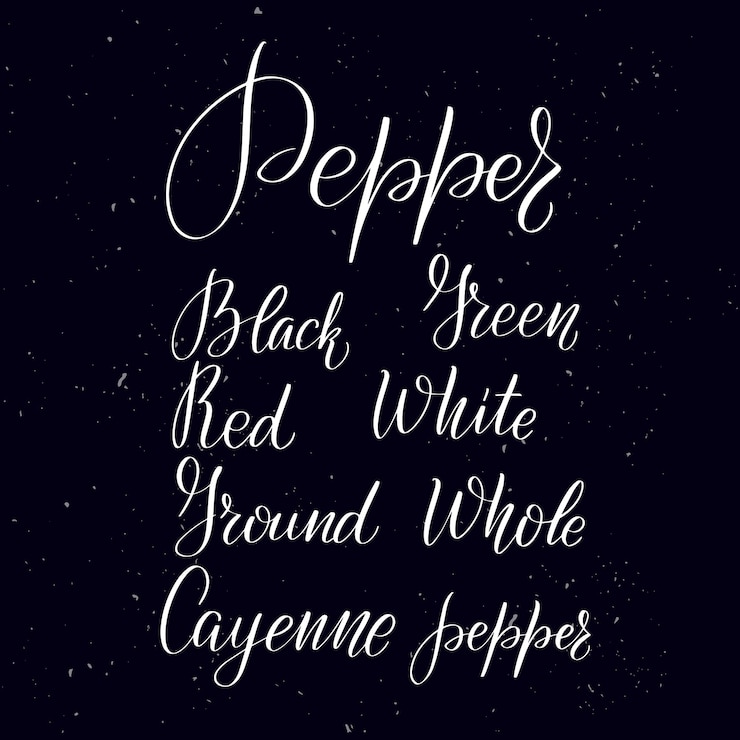 Pepper
Black Green
Red White
Ground Whole
Cayenne pepper